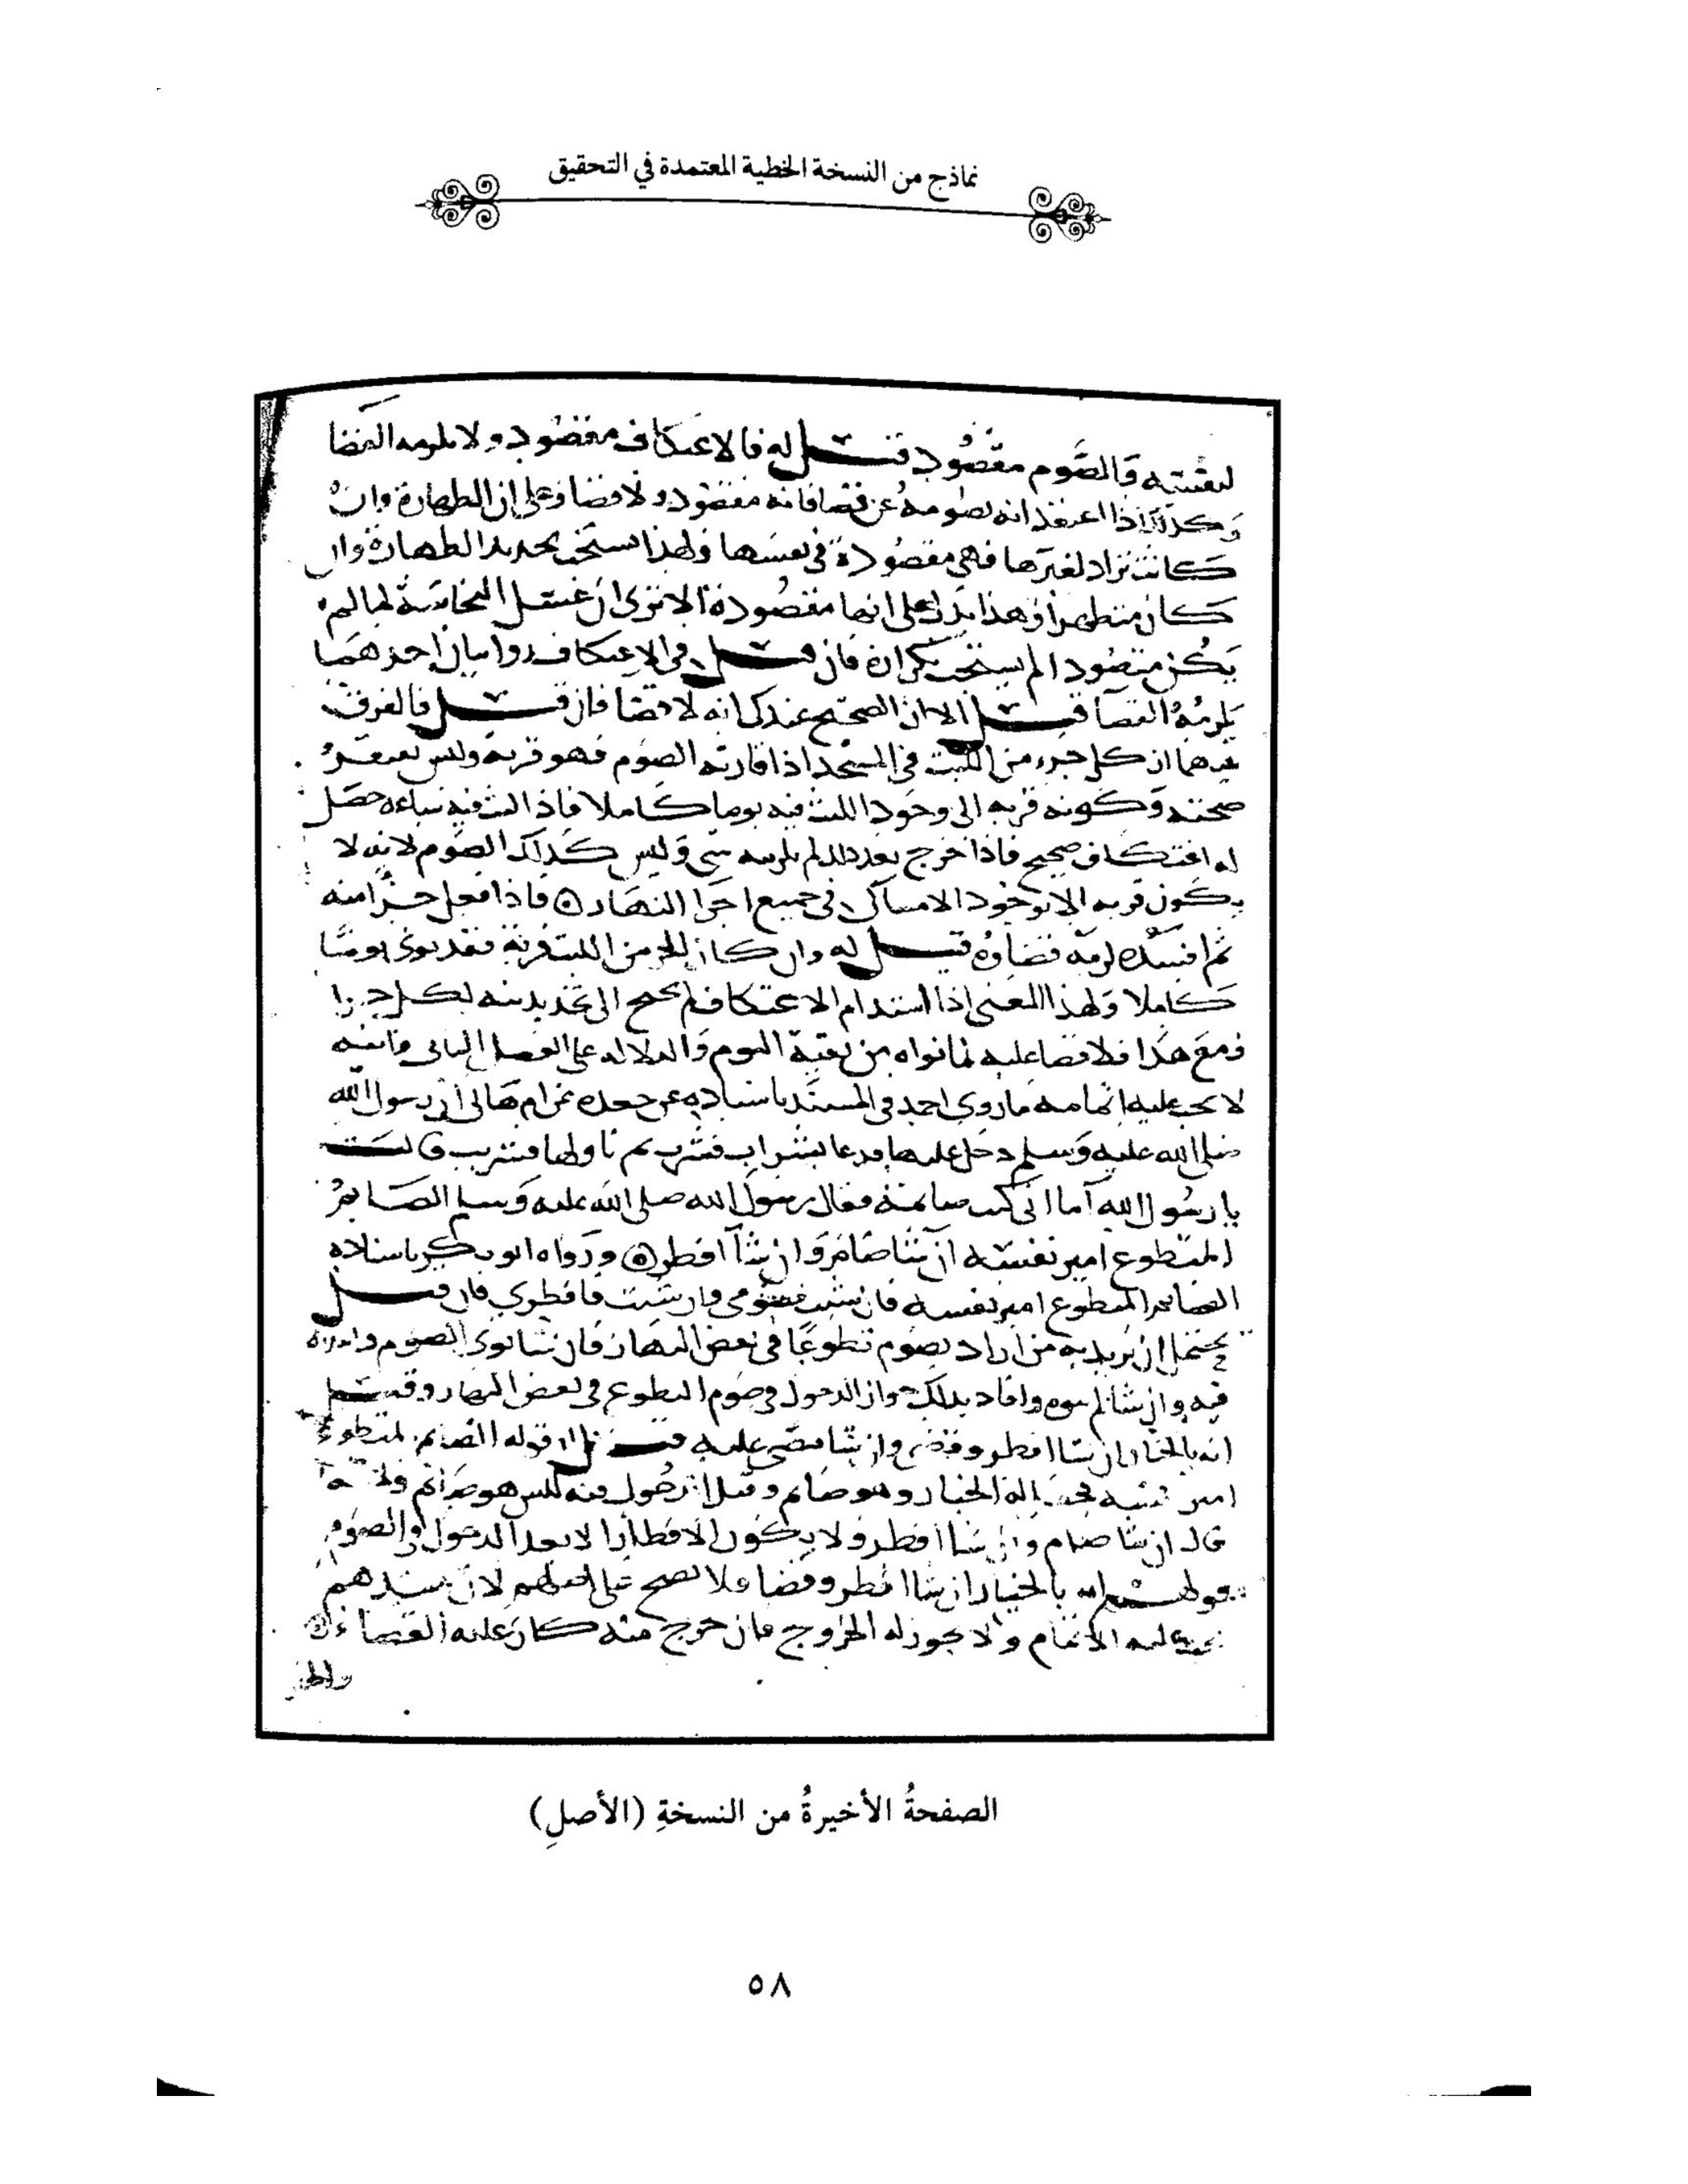 نماذج من النسخة الخطية المعتمدة في التحقيق
لنفسه والصوم مقصود قيل له فالاعتكاف مقصود ولا يلزمه القضا
وكذلك اذا اعتقد انه يصومه عن قضا فانه مقصود ولا قضا وعلى ان الطهارة وان
كانت تراد لغيرها فهي مقصودة في نفسها ولهذا يستحب تجديد الطهارة وان
كان متطهرا وهذا يدل على انها مقصودة الا ترى ان غسل النجاسة لما لم
يكن مقصودا لم يستحب تكراره فان قيل في الاعتكاف روايتان احدهما
يلزمه القضا قيل الا ان الصحيح عندي انه لا قضا فان قيل فالفرق
بينهما ان كل جزء من اللبث في المسجد اذا قارنه الصوم فهو قربة وليس يفتقر
صحته وكونه قربه الى وجود اللبث فيه يوما كاملا فاذا لبث فيه ساعه حصل
له اعتكاف صحيح فاذا خرج بعد ذلك لم يلزمه شي وليس كذلك الصوم لانه لا
يكون قربه الا بوجود الامساك في جميع اجزا النهار فاذا فعل جزا منه
ثم افسده لزمه قضاوه قيل له وان كان الجزء من اللبث قربة فقد نوى يوما
كاملا ولهذا المعنى اذا استدام الاعتكاف لم يحتج الى تجديد نيته لكل جزء
ومع هذا فلا قضا عليه لما نواه من بقية اليوم والدلاله على الفصل الثاني وانه
لا يجب عليه اتمامه ما روى احمد في المسند باسناده عن جعده عن ام هانى ان رسول الله
صلى الله عليه وسلم دخل عليها فدعا بشراب فشرب ثم ناولها فشربت وقالت
يا رسول الله اما اني كنت صائمة فقال رسول الله صلى الله عليه وسلم الصايم
المتطوع امير نفسه ان شا صام وان شا افطر ورواه ابو بكر باسناده
الصايم المتطوع امير نفسه فان شيت فصومي وان شيت فافطري فان قيل
يحتمل ان يريد به من اراد يصوم تطوعا في بعض النهار فان شا نوى الصوم
فيه وان شا لم ينوه وافاد بذلك جواز الدخول في صوم التطوع في بعض النهار وقيل
انه بالخيار ان شا افطر وقضى وان شا مضى عليه قيل قوله الصايم المتطوع
امير نفسه له الخيار وهو صائم وقبل دخوله فيه ليس هو صائم
قال ان شا صام وان شا افطر ولا يكون الافطار الا بعد الدخول في الصوم
وقولهم انه بالخيار ان شا افطر وقضا فلا يصح على اصلهم لان عندهم
يجب عليه الاتمام ولا يجوز له الخروج فان خرج منه كان عليه القضاء
الصفحةُ الأخيرةُ من النسخةِ (الأصلِ)
٥٨